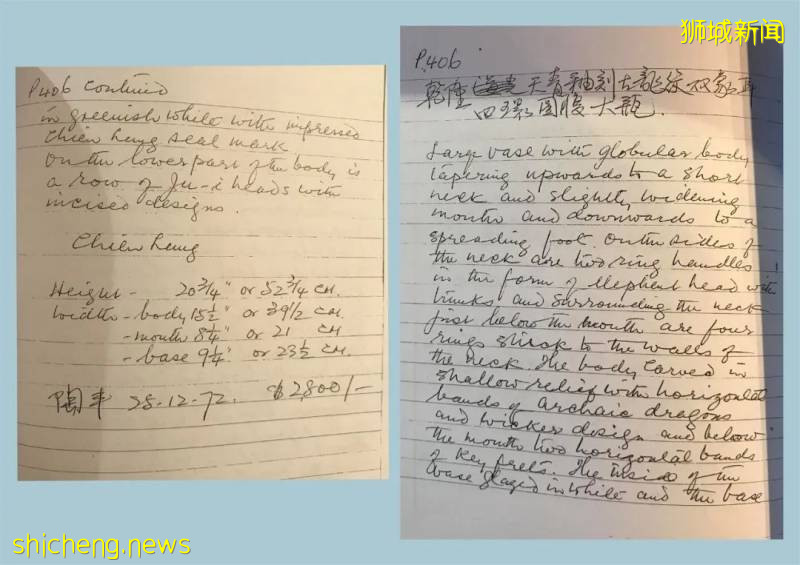 狮城新闻
P.406
乾隆天青釉刻古龍紋双象耳
四环圆腹大瓶.
Large vase with globular body
tapering upwards to a short
neck and slightly widening
mouth and downwards to a
spreading foot. On the sides of
the neck are two ring handles
in the form of elephent head with
trunks and surrounding the neck
just below the mouth are four
rings stuck to the walls of
the neck. The body carved in
shallow relief with horizontal
bands of archaic dragons
and wicker design and below
the mouth two horizontal bands
of key frets. The inside of the
base glazed in white and the base
P406 continued
in greenish white with impressed
Chien Lung seal mark
On the lower part of the body is
a row of Ju-i heads with
incised designs.
Chien Lung
Height - 20 3/4" or 52 3/4 CM.
Width - body 15½" or 39 1/2 CM.
- mouth 8¼" or 21 CM
- base 9¼" or 23½ CM.
陶 28-12-72. $2,800/-
shicheng.news